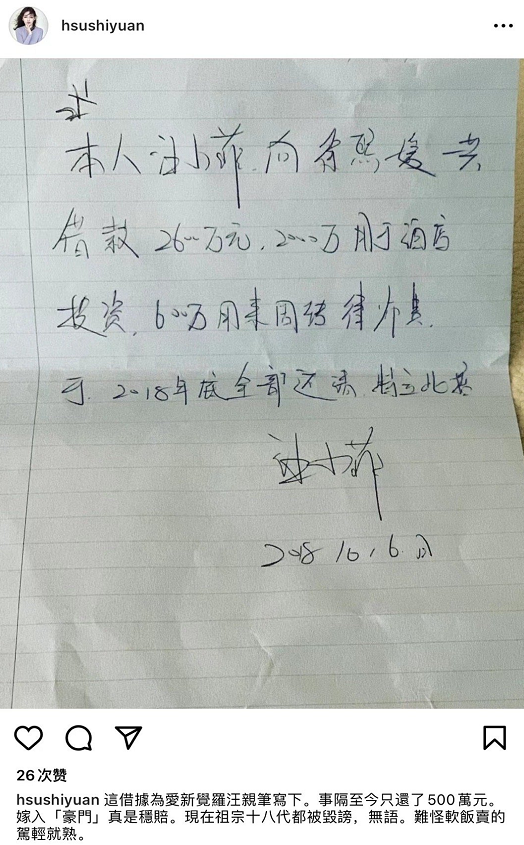 hsushiyuan
本人汪小菲，向徐熙媛共
借款 2600万元，2000万用于酒店
投资，600万用来周转律师费，
于，2018年底全部还清 特立此据
汪小菲
2018 10，6.日
26次赞
hsushiyuan 這借據為愛新覺羅汪親筆寫下。事隔至今只還了500萬元。
嫁入「豪門」真是穩賠。現在祖宗十八代都被毀謗，無語。難怪軟飯賣的
駕輕就熟。